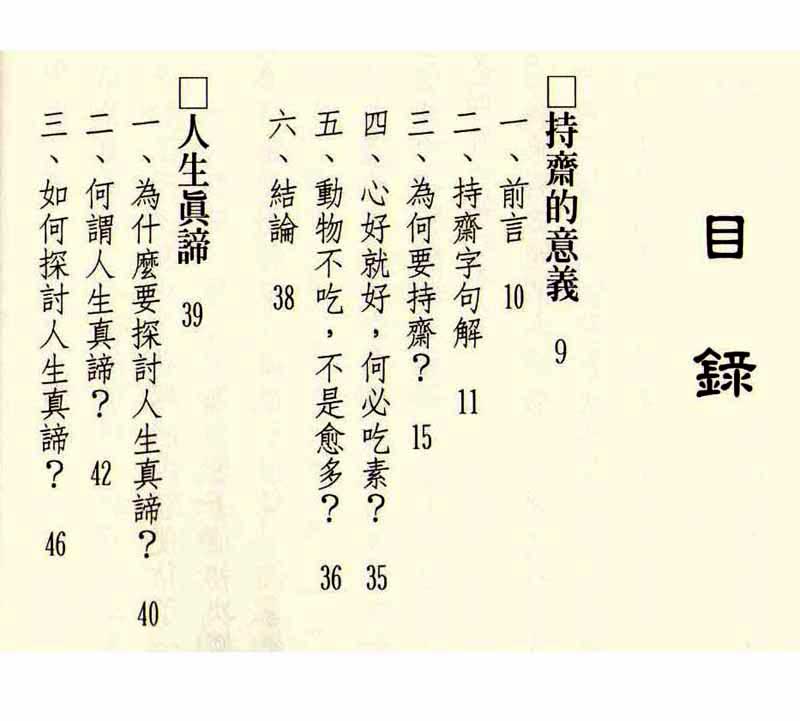 目錄
□持齋的意義 9
一、前言 10
二、持齋字句解 11
三、為何要持齋？ 15
四、心好就好，何必吃素？ 35
五、動物不吃，不是愈多？ 36
六、結論 38
□人生眞諦 39
一、為什麼要探討人生真諦？ 40
二、何謂人生真諦？ 42
三、如何探討人生真諦？ 46